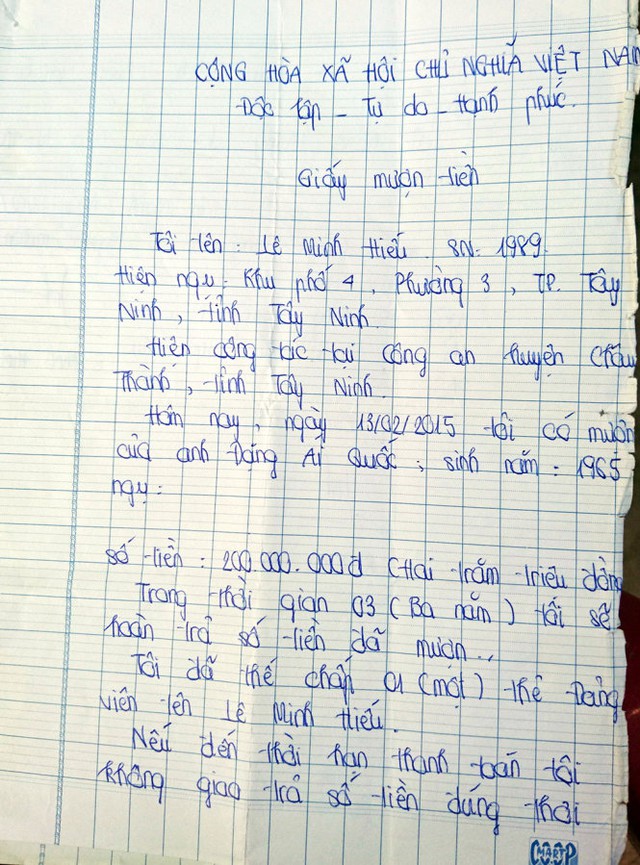 CỘNG HÒA XÃ HỘI CHỦ NGHĨA VIỆT NAM
Độc lập - Tự do - Hạnh phúc.
Giấy mượn tiền
Tôi tên : Lê Minh Hiếu. SN: 1989.
Hiện ngụ : Khu phố 4, Phường 3, TP. Tây
Ninh, tỉnh Tây Ninh.
Hiện công tác tại công an huyện Châu
Thành, tỉnh Tây Ninh.
Hôm nay, ngày 13/02/2015 tôi có mượn
của anh Đặng Ái Quốc ; sinh năm : 1965
ngụ :
số tiền : 200.000.000đ (Hai trăm triệu đồng
Trong thời gian 03 (Ba năm) tôi sẽ
hoàn trả số tiền đã mượn..
Tôi đã thế chấp 01 (một) thẻ Đảng
viên tên Lê Minh Hiếu.
Nếu đến thời hạn thanh toán tôi
không giao trả số tiền đúng thời